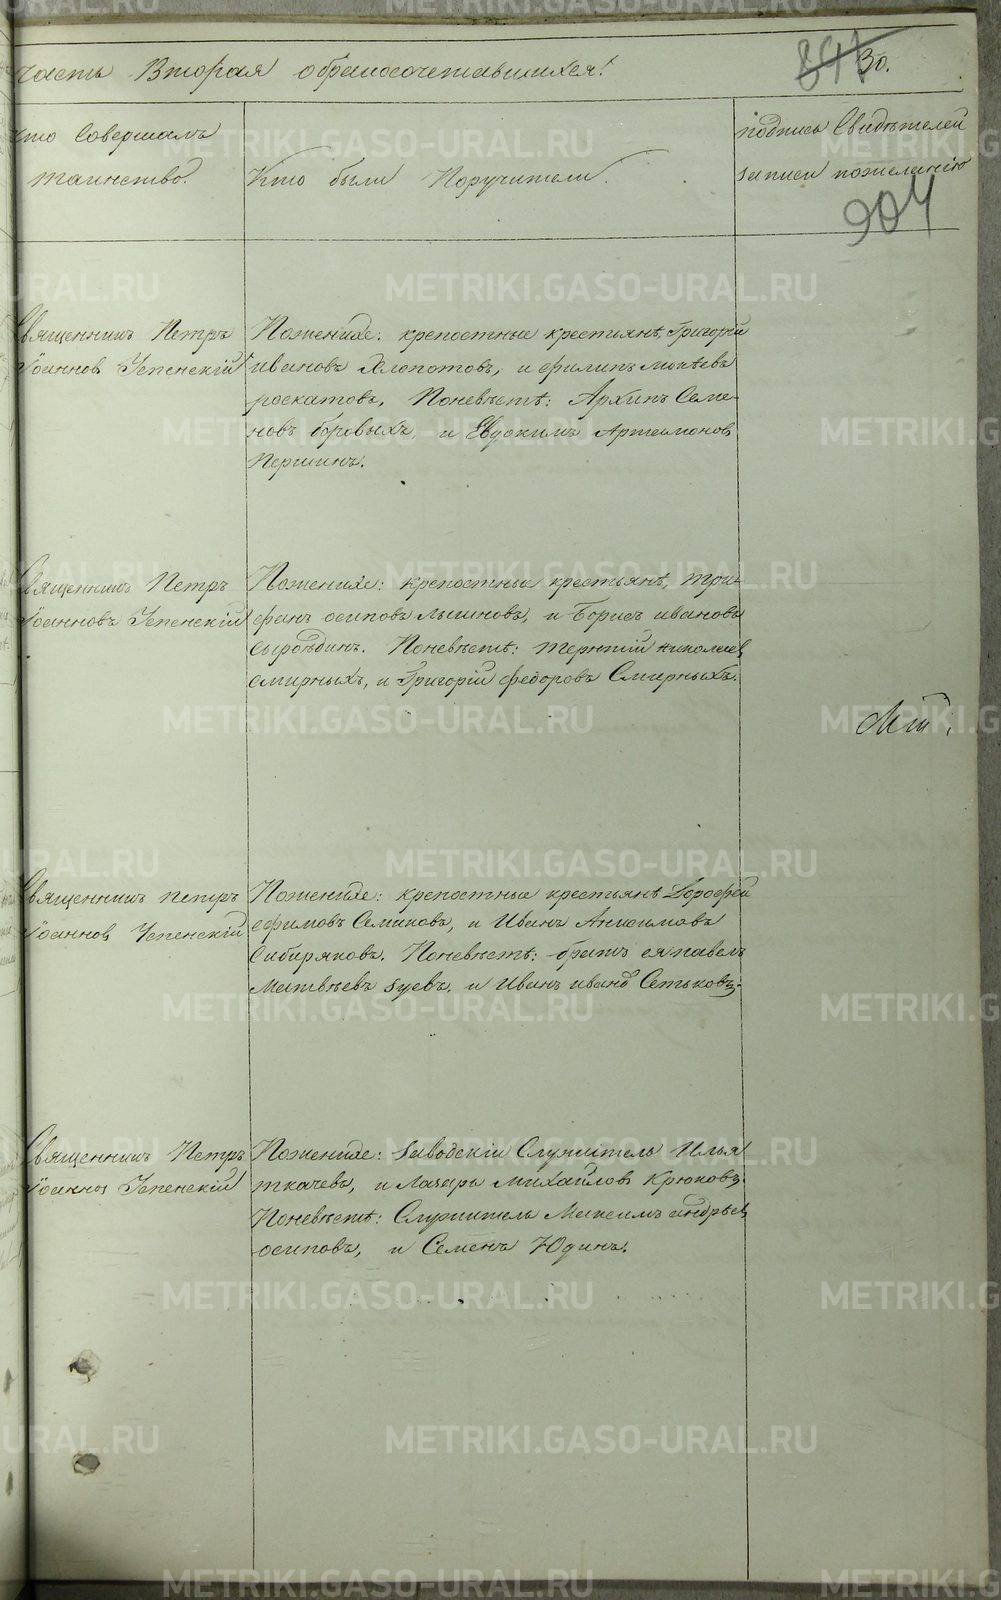 часть Вторая обракосочетавшихся!
847 30.
кто Совершалъ
таинство.
Кто были Поручители.
подпись Свидѣтелей
записи пожеланію
904
Священникъ Петръ
Іоанновъ Успенскій
Поженихе: крепостные крестьянѣ, Григорій
ивановъ Хлопотовъ, и филипъ мокѣевъ
роскатовъ, Поневѣстѣ: Архипъ Семе-
новъ боровыхъ, и Евдокимъ Артамоновъ
Першинъ.
Священникъ Петръ
Іоанновъ Успенскій
Поженихе: крепостные крестьянѣ, три-
фанъ осиповъ и Борисъ ивановъ
Поневѣстѣ: терентій николаевъ
смирныхъ, и Григорій федоровъ Смирныхъ.
Священникъ петръ
Іоанновъ Успенскій
Поженихе: крепостные крестьянѣ Дорофей
ефимовъ Семиковъ, и Иванъ Анисимовъ
Сибиряковъ. Поневѣстѣ: братъ ея павелъ
Матвѣевъ зуевъ, и Иванъ иванов Сетьковъ.
Священникъ Петръ
Іоаннов Успенскій
Поженихе: заводскій Служитель Илья
ткачевъ, и Лазарь михайловъ Крюковъ.
Поневѣстѣ: Служитель Максимъ андрѣевъ
осиповъ, и Семенъ Юдинъ.
METRIKI.GASO-URAL.RU